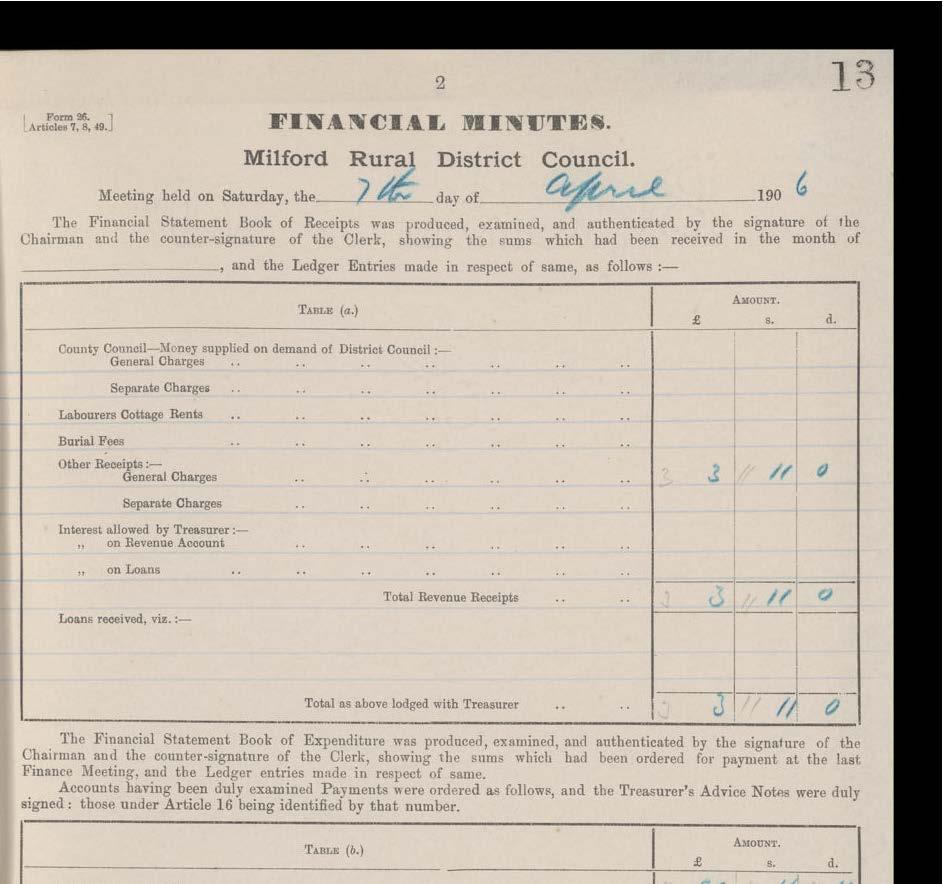 13
2
Form 26.
Articles 7, 8, 49.
FINANCIAL MINUTES.
Milford Rural District Council.
Meeting held on Saturday, the 7th day of April 1906
The Financial Statement Book of Receipts was produced, examined, and authenticated by the signature of the
Chairman and the counter-signature of the Clerk, showing the sums which had been received in the month of
, and the Ledger Entries made in respect of same, as follows :—
TABLE (a.) AMOUNT.
£ s. d.
County Council—Money supplied on demand of District Council :—
General Charges .. .. .. .. .. .. ..
Separate Charges .. .. .. .. .. .. ..
Labourers Cottage Rents .. .. .. .. .. .. ..
Burial Fees .. .. .. .. .. .. ..
Other Receipts :—
General Charges .. .. .. .. .. .. 3 11 0
Separate Charges .. .. .. .. .. ..
Interest allowed by Treasurer :—
„ on Revenue Account .. .. .. .. .. ..
„ on Loans .. .. .. .. .. .. ..
Total Revenue Receipts .. .. 3 11 0
Loans received, viz. :—
Total as above lodged with Treasurer .. .. 3 11 0
The Financial Statement Book of Expenditure was produced, examined, and authenticated by the signature of the
Chairman and the counter-signature of the Clerk, showing the sums which had been ordered for payment at the last
Finance Meeting, and the Ledger entries made in respect of same.
Accounts having been duly examined Payments were ordered as follows, and the Treasurer's Advice Notes were duly
signed : those under Article 16 being identified by that number.
TABLE (b.) AMOUNT.
£ s. d.